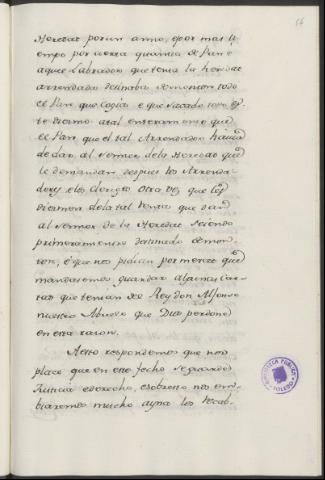 56
Heredat por un anno, o por mas ti-
empo por cierta quantia de Pan e
aquel Labrador que tenia la heredat
arrendada dezmaba de monton todo
el Pan que Cogia e que sacado todo es-
te diezmo atal enteramente que
el Pan que el tal Arrendador havie
de dar al Sennor dela Heredat que
le demandan despues los Arrenda-
dores e los Clerigos otra vez que les
diezmen dela tal renta que dan
al Sennor de la Heredat Seiendo
primeramente deztmado de mon-
ton, e que nos pidien por merced que
mandasemos guardar algunas Car-
tas que tenian del Rey don Alfonso
nuestro Abuelo que Dios perdone
en esta razon.
A esto respondemos que nos
place que en este fecho se guarde
Justicia e derecho, e sobresto nos em-
biaremos mucho ayna los recab-
BIBLIOTECA PUBLICA
TOLEDO